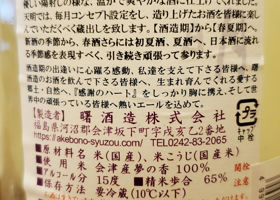 優しい陽射しの様な、温かで爽やかな酒に仕上げてくれました。
天明では、毎月コンセプト設定をし、造り上げたお酒を皆様に楽し
んでいただくべく蔵出しを致します。【酒造期】から【春夏期】へ、
新酒の季節から、春酒さらには初夏酒、夏酒へ、日本酒に流れ
る季節感を表現すべく、引き続き頑張って参ります。
酒造期の出逢いに心躍る感動、私達を支えて下さる皆様、我
蔵のお酒を飲んで下さる皆様へ、生まれ育んでくれる愛する郷
土・自然へ、『感謝のハート』をしっかり胸に携え、そして世界
中の頑張っている皆様へ熱いエールを込めて。
【製造者】 曙酒造株式会社
福島県河沼郡会津坂下町字戌亥乙2番地
https://akebono-syuzou.com/ TEL.0242-83-2065
■原材料名 米(国産)、米こうじ(国産米)
■使用米 会津産夢の香100%
■アルコール分 15度 ■精米歩合 65%
■保存方法 冷蔵(10℃以下)
プラ
キャップ
中栓